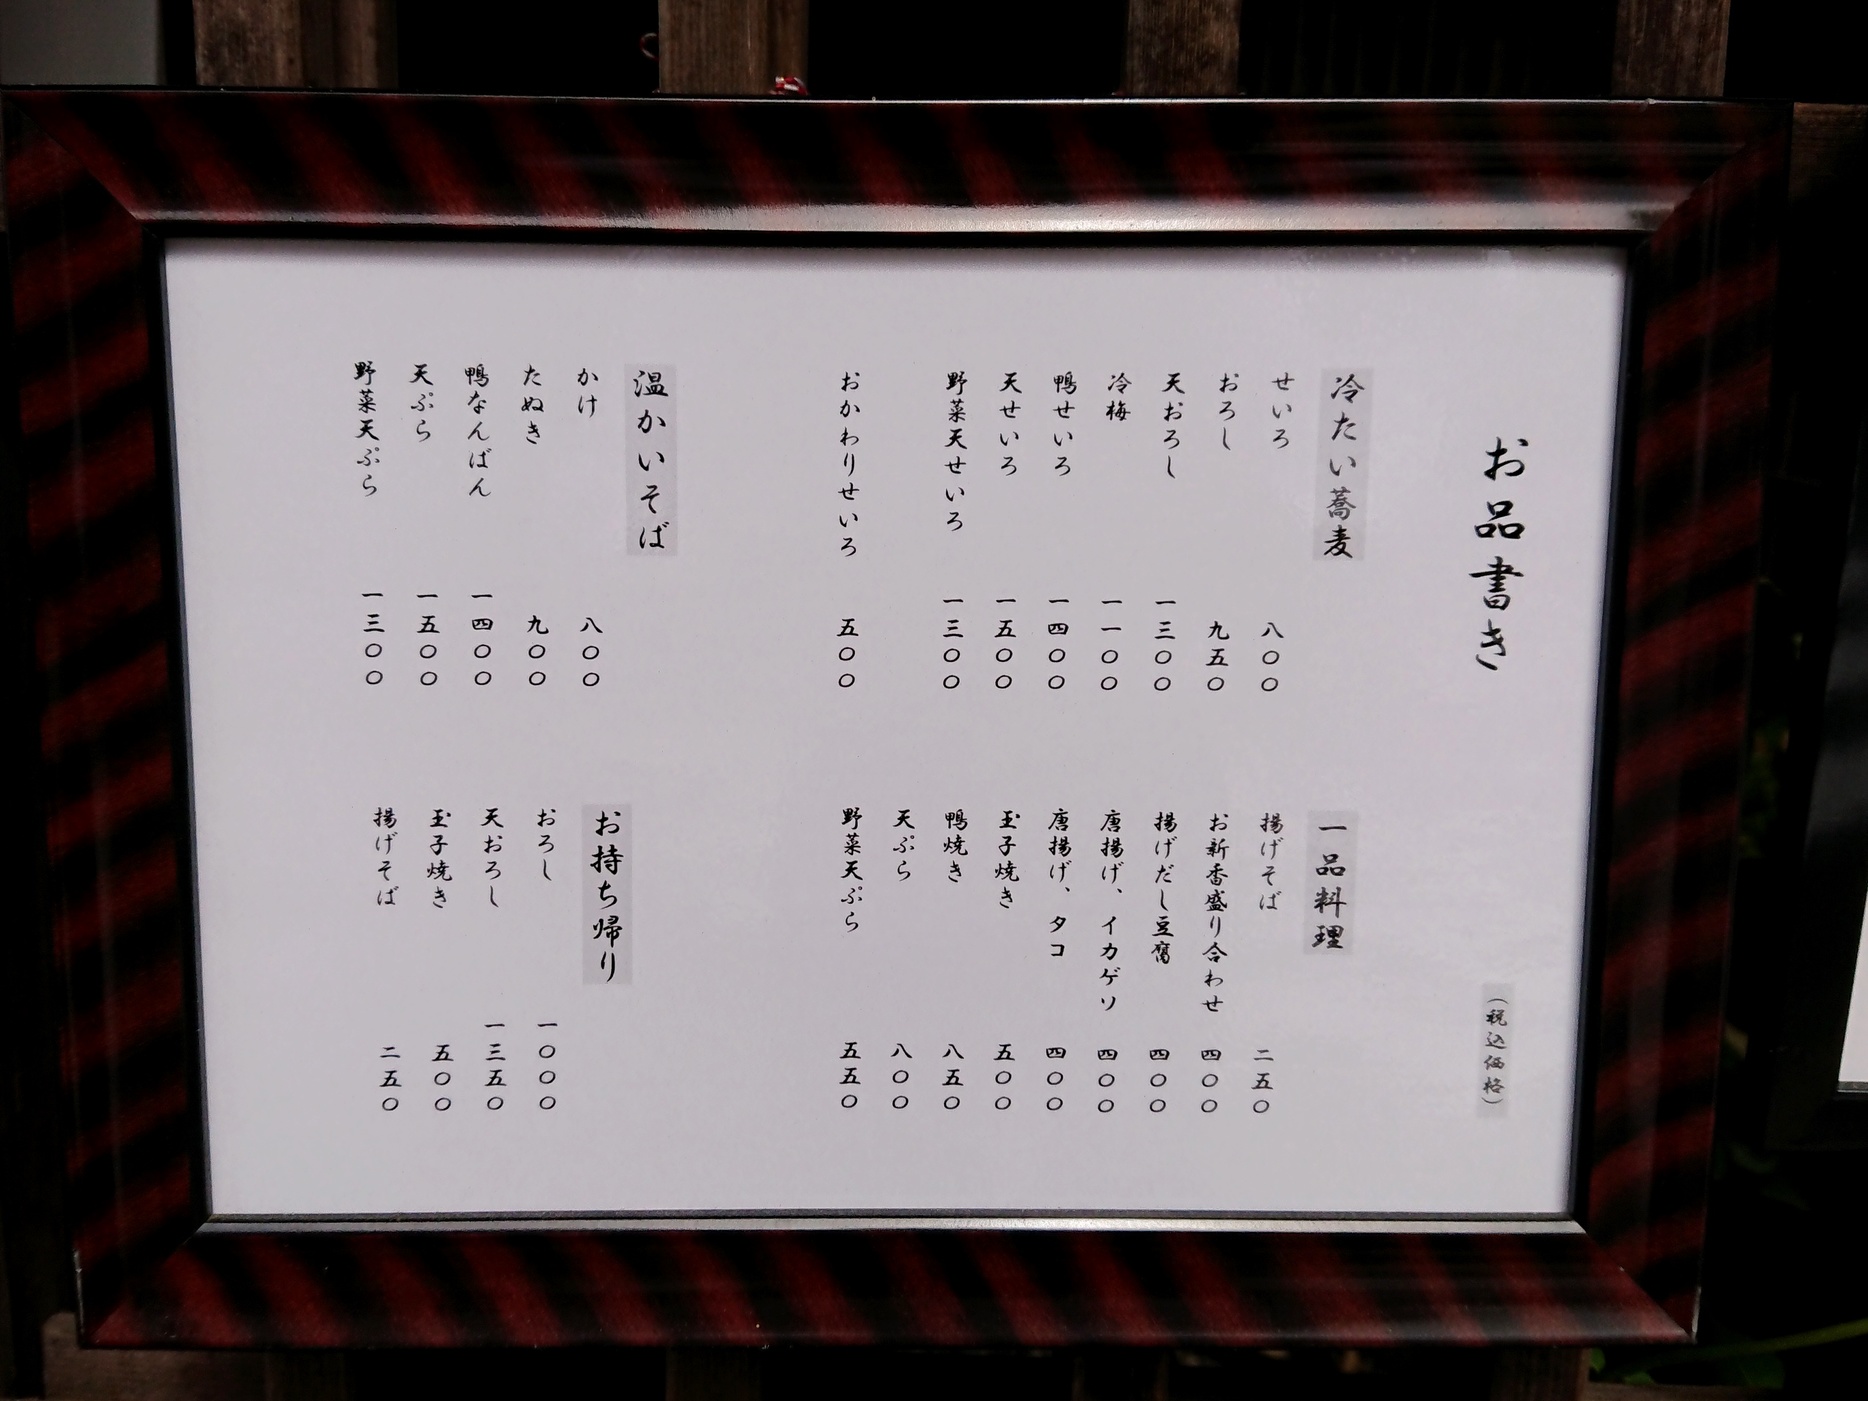 お品書き
(税込価格)
冷たい蕎麦
せいろ 八〇〇
おろし 九五〇
天おろし 一三〇〇
冷梅 一一〇〇
鴨せいろ 一四〇〇
天せいろ 一五〇〇
野菜天せいろ 一三〇〇
おかわりせいろ 五〇〇
温かいそば
かけ 八〇〇
たぬき 九〇〇
鴨なんばん 一四〇〇
天ぷら 一五〇〇
野菜天ぷら 一三〇〇
一品料理
揚げそば 二五〇
お新香盛り合わせ 四〇〇
揚げだし豆腐 四〇〇
唐揚げ、イカゲソ 四〇〇
唐揚げ、タコ 四〇〇
玉子焼き 五〇〇
鴨焼き 八五〇
天ぷら 八〇〇
野菜天ぷら 五五〇
お持ち帰り
おろし 一〇〇〇
天おろし 一三五〇
玉子焼き 五〇〇
揚げそば 二五〇